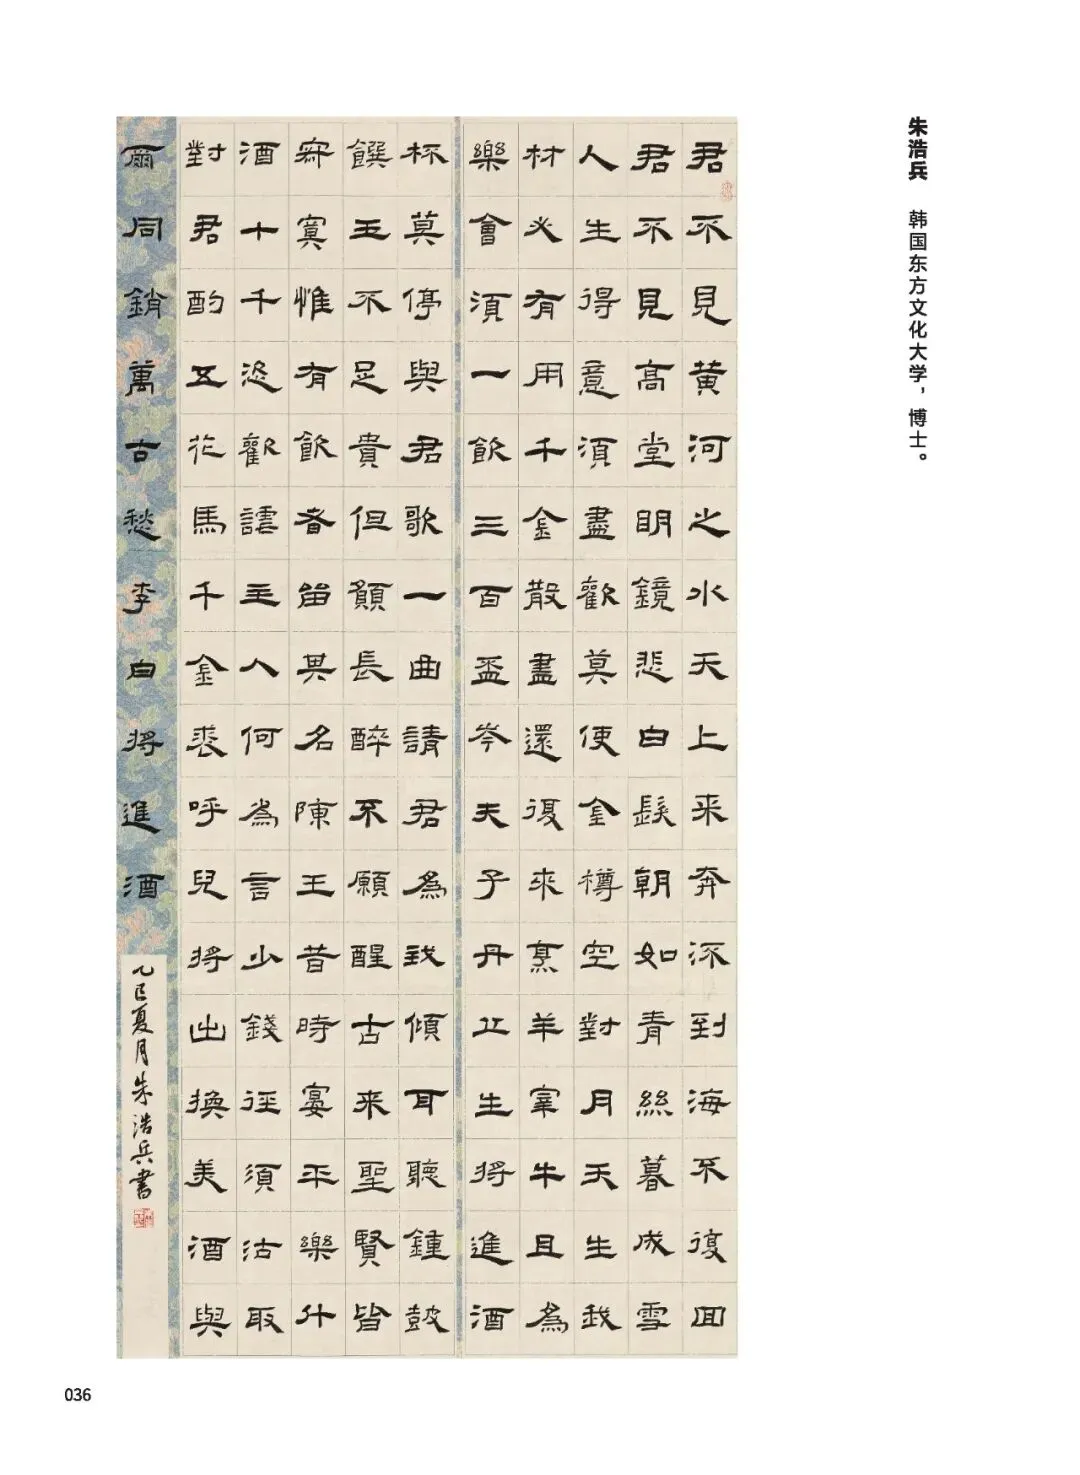 朱浩兵 韩国东方文化大学，博士。
君不見黄河之水天上来奔流到海不復回
君不見高堂明鏡悲白髮朝如青絲暮成雪
人生得意須盡歡莫使金樽空對月天生我
材必有用千金散盡還復來烹羊宰牛且為
樂會須一飲三百盃岑夫子丹丘生将進酒
杯莫停與君歌一曲請君為我傾耳聽鐘鼓
饌玉不足貴但願長醉不願醒古来聖賢皆
寂寞惟有飲者留其名陳王昔時宴平樂斗
酒十千恣歡謔主人何為言少錢徑須沽取
對君酌五花馬千金裘呼兒将出換美酒與
爾同銷萬古愁李白将進酒
乙巳夏月朱浩兵書
036